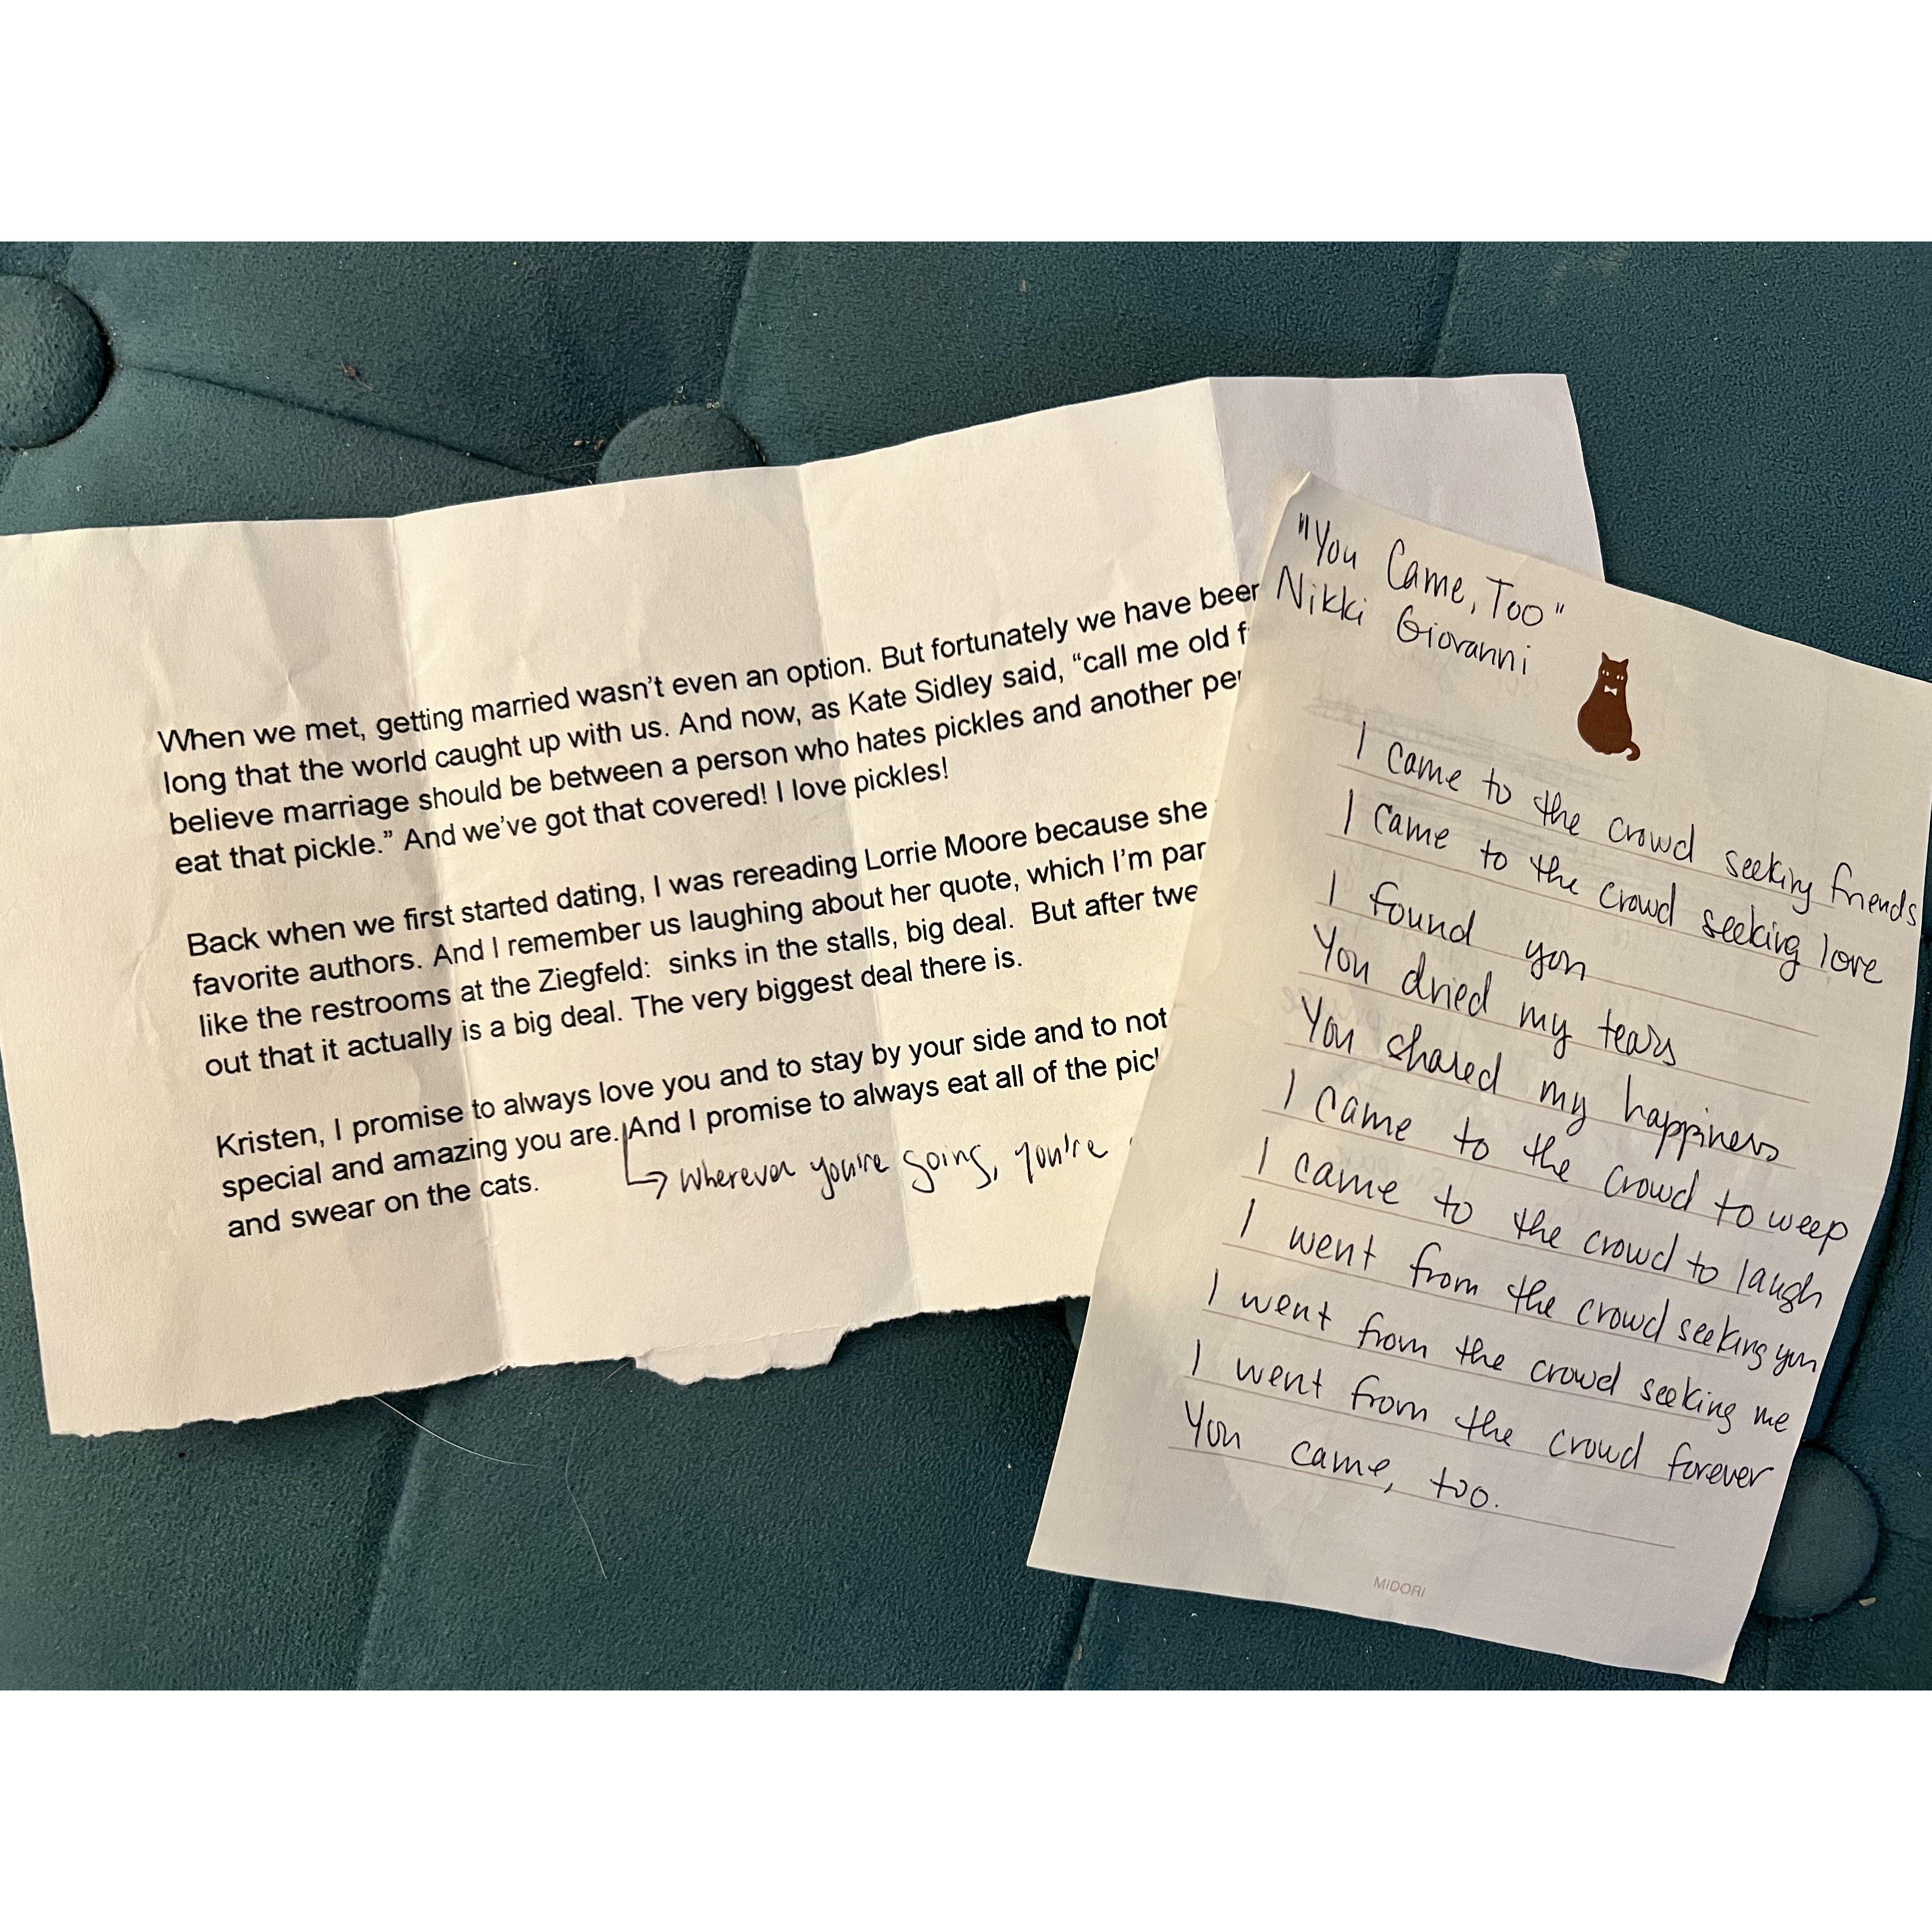 When we met, getting married wasn't even an option. But fortunately we have been
long that the world caught up with us. And now, as Kate Sidley said, "call me old
believe marriage should be between a person who hates pickles and another
eat that pickle." And we've got that covered! I love pickles!
Back when we first started dating, I was rereading Lorrie Moore because she
favorite authors. And I remember us laughing about her quote, which I'm
like the restrooms at the Ziegfeld: sinks in the stalls, big deal. But after
out that it actually is a big deal. The very biggest deal there is.
Kristen, I promise to always love you and to stay by your side and to not
special and amazing you are. And I promise to always eat all of the
and swear on the cats.
wherever you're going, you're
"You Came, Too"
Nikki Giovanni
I came to the crowd seeking friends
I came to the crowd seeking love
I found you
You dried my tears
You shared my happiness
I came to the crowd to weep
I came to the crowd to laugh
I went from the crowd seeking you
I went from the crowd seeking me
I went from the crowd forever
You came, too.
MIDORI